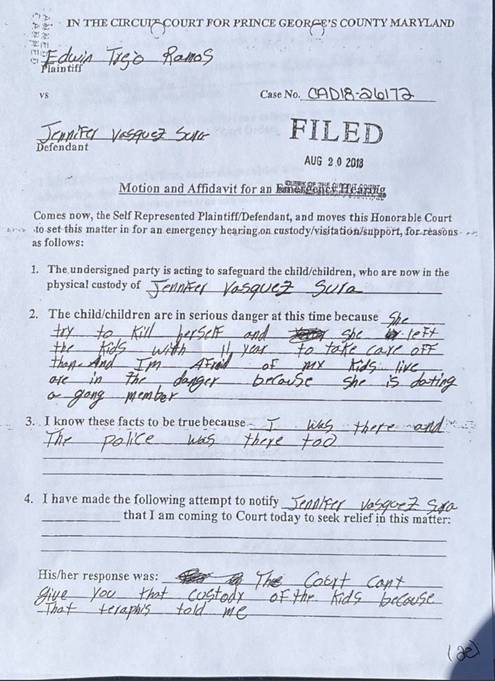 IN THE CIRCUIT COURT FOR PRINCE GEORGE'S COUNTY MARYLAND
Edwin Trejo Ramos
Plaintiff
vs
Case No. CAD18-26172
Jennifer Vasquez Sura
Defendant
FILED
AUG 20 2018
Motion and Affidavit for an Emergency Hearing
Comes now, the Self Represented Plaintiff/Defendant, and moves this Honorable Court
to set this matter in for an emergency hearing on custody/visitation/support, for reasons
as follows:
1. The undersigned party is acting to safeguard the child/children, who are now in the
physical custody of Jennifer Vasquez Sura
2. The child/children are in serious danger at this time because She
try to kill herself and she left
the kids with 11 year to take care off
them. And I'm Afraid of my kids live
are in the danger because she is dating
a gang member
3. I know these facts to be true because I was there and
The police was there too
4. I have made the following attempt to notify Jennifer Vasquez Sura
that I am coming to Court today to seek relief in this matter:
His/her response was: The Court cant
give you that custody of the kids because
That teraphis told me